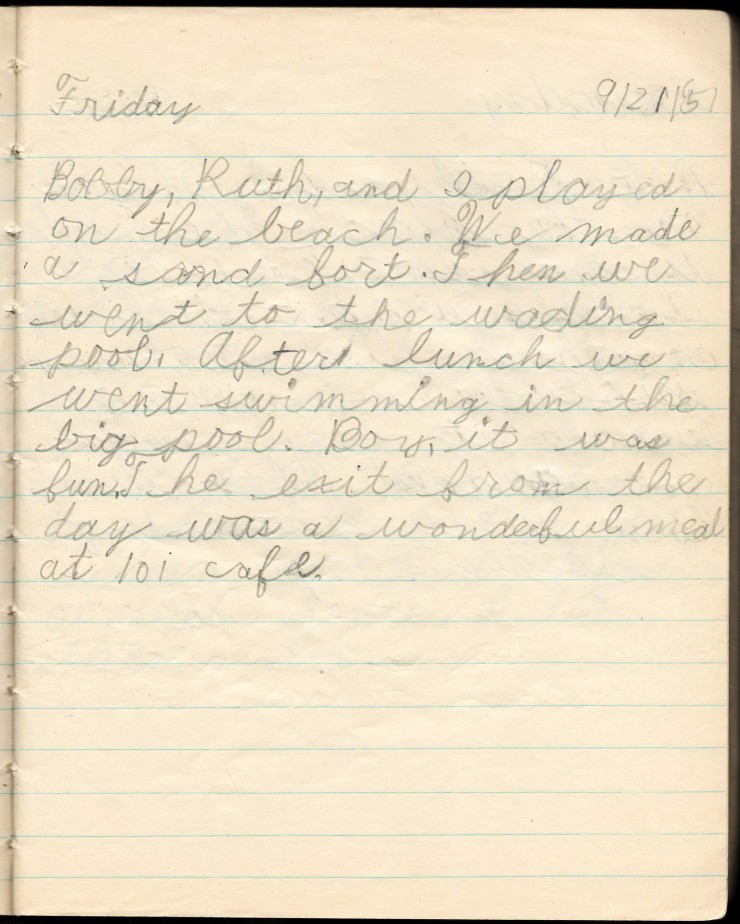 Friday 9/21/51
Bobby, Ruth, and I played
on the beach. We made
a sand fort. Then we
went to the wading
pool. After lunch we
went swimming in the
big pool. Boy, it was
fun. The exit from the
day was a wonderful meal
at 101 cafe.